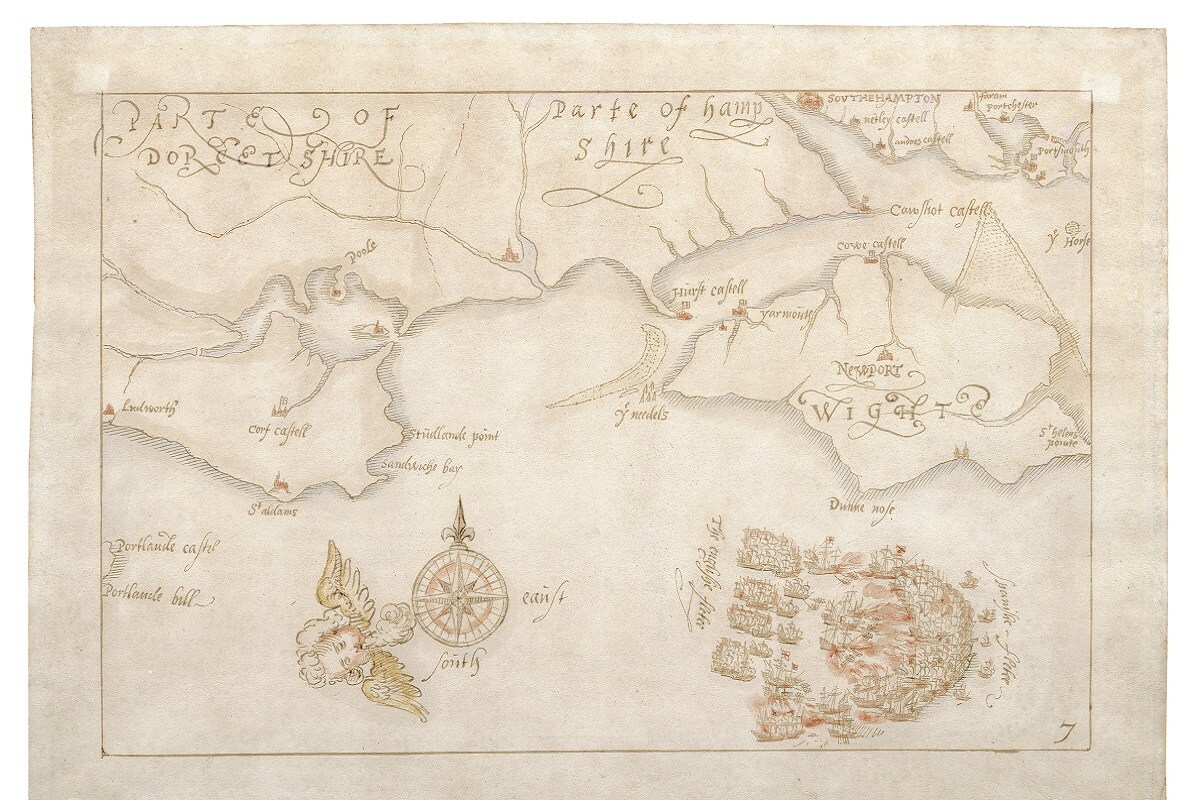 PARTE OF
DORSET SHIRE
Parte of hamp
shire
SOVTHEHAMPTON
netley castell
portchester
Portsmouth
Cawshot castell
yᵉ Horse
Cowe castell
Poole
Hurst castell
yarmouth
NEWPORT
WIGHTE
yᵉ needels
Sᵗ helens
pointe
Ludworth
Corf castell
Studlande point
Sandwiche bay
Sᵗ aldams
Dunne nose
Portlande castel
Portlande bill
eaust
south
The englishe fleete
Spanish fleete
7